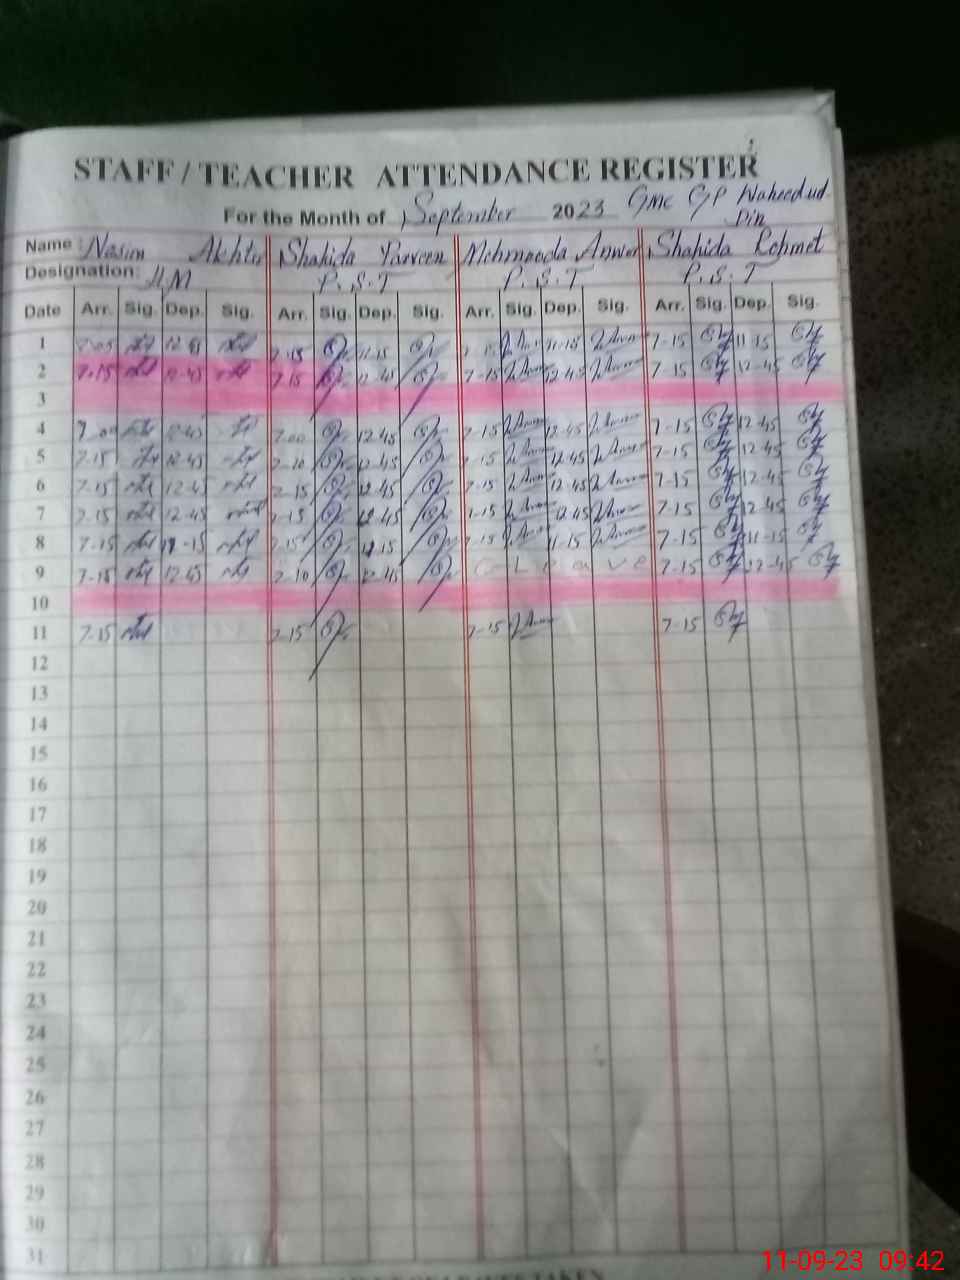 STAFF / TEACHER ATTENDANCE REGISTER
For the Month of September 2023 GMC GP Waheed ud-
Din
Name: Nasim Akhtar Shahida Parveen Mehmooda Anwer Shahida Rehmat
Designation: H.M P.S.T P.S.T P.S.T
Date Arr. Sig. Dep. Sig. Arr. Sig. Dep. Sig. Arr. Sig. Dep. Sig. Arr. Sig. Dep. Sig.
1 7-05 12-45 7-15 11-15 7-15 11-15 7-15 11-15
2 7-15 12-45 7-15 12-45 7-15 12-45 7-15 12-45
3
4 7-00 12-45 7-00 12-45 7-15 12-45 7-15 12-45
5 7-15 12-45 7-10 12-45 7-15 12-45 7-15 12-45
6 7-15 12-45 7-15 12-45 7-15 12-45 7-15 12-45
7 7-15 12-45 7-15 12-45 7-15 12-45 7-15 12-45
8 7-15 11-15 7-15 11-15 7-15 11-15 7-15 11-15
9 7-15 12-45 7-10 12-45 C Leave 7-15 12-45
10
11 7-15 7-15 7-15 7-15
12
13
14
15
16
17
18
19
20
21
22
23
24
25
26
27
28
29
30
31
11-09-23 09:42